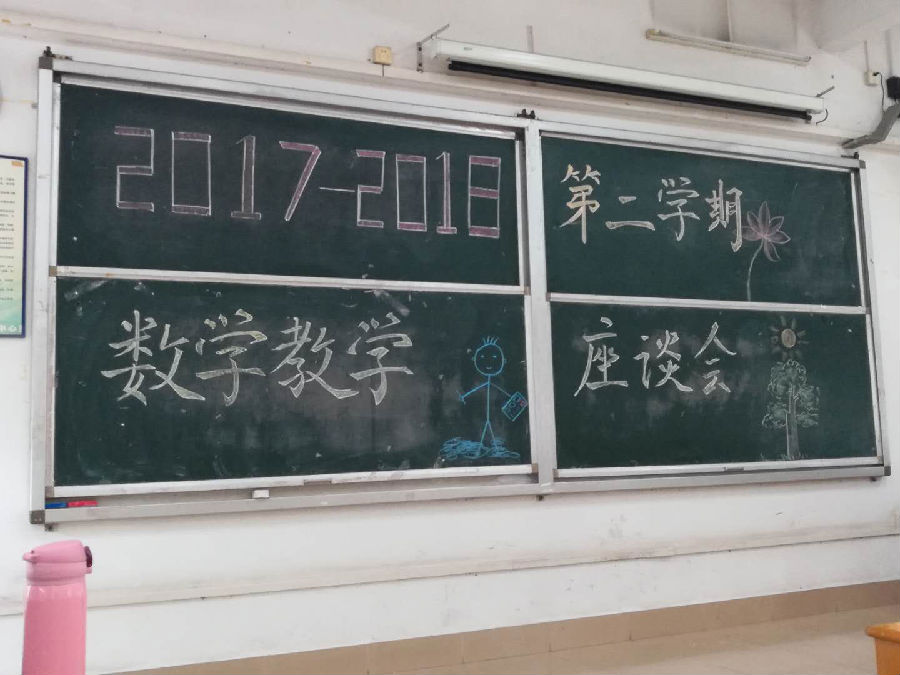 2017-2018
第二学期
数学教学
座谈会